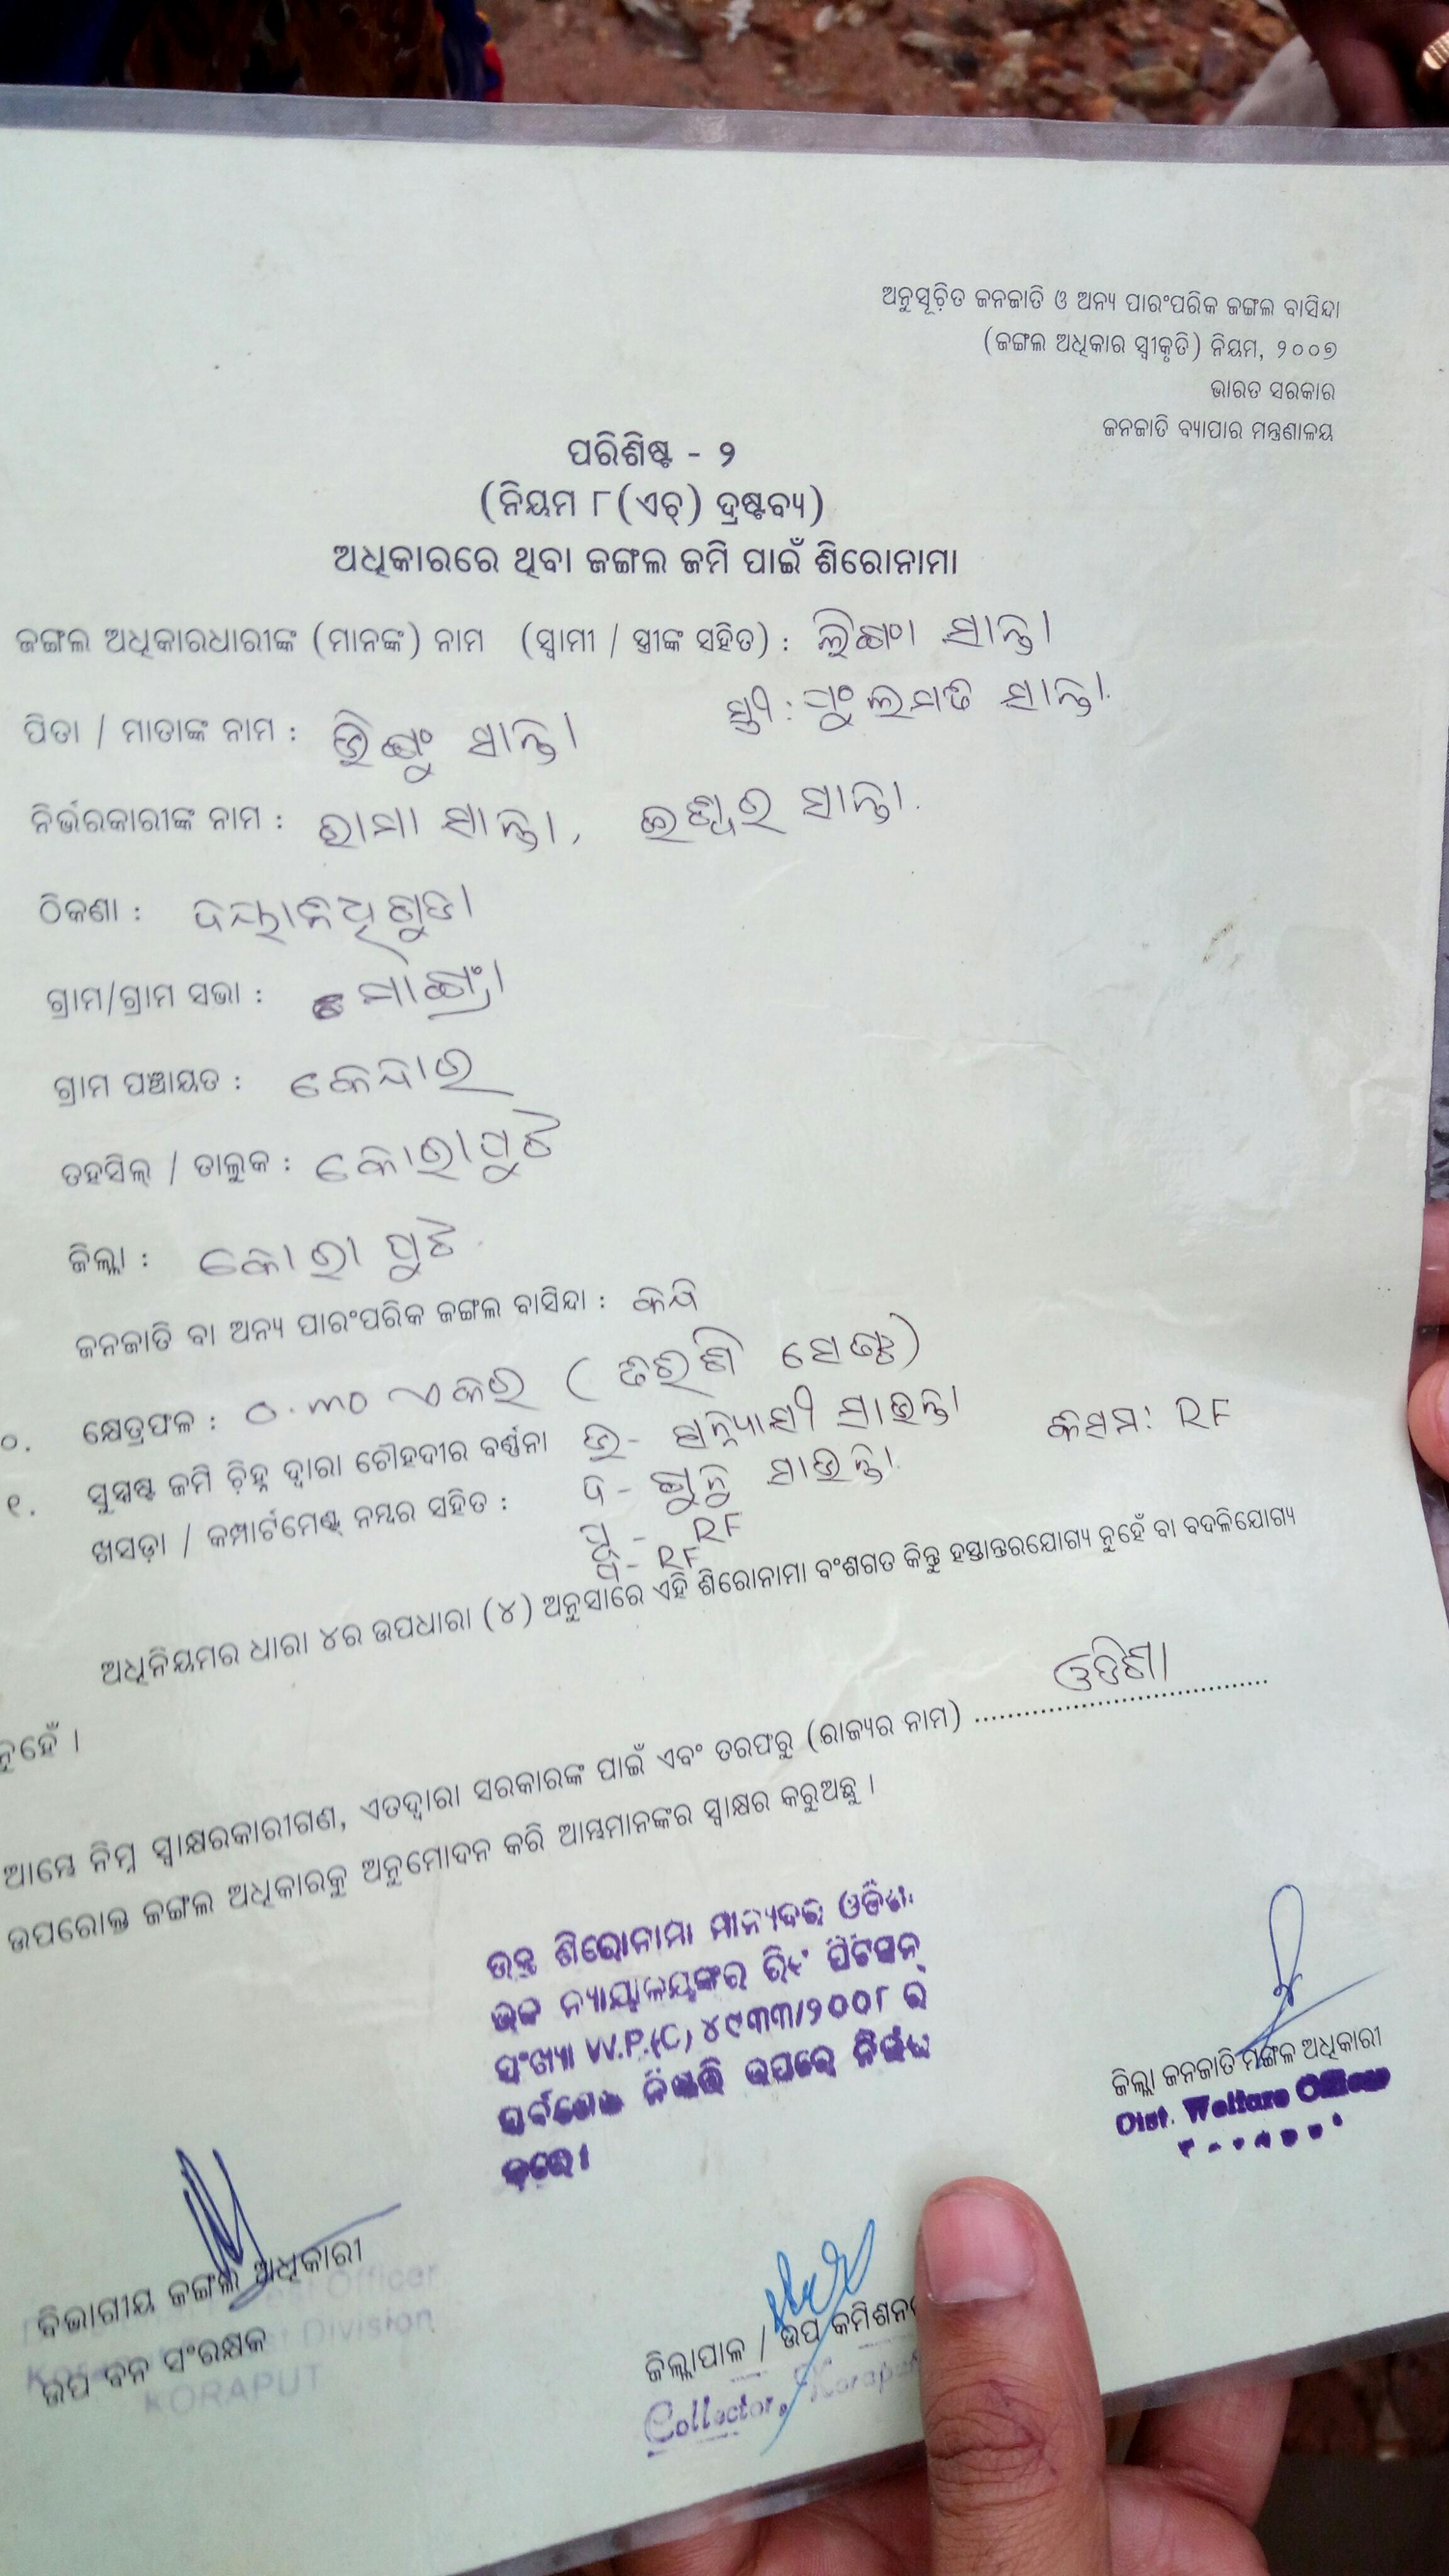 ଅନୁସୂଚିତ ଜନଜାତି ଓ ଅନ୍ୟ ପାରଂପରିକ ଜଙ୍ଗଲ ବାସିନ୍ଦା
(ଜଙ୍ଗଲ ଅଧିକାର ସ୍ୱୀକୃତି) ନିୟମ, ୨୦୦୭
ଭାରତ ସରକାର
ଜନଜାତି ବ୍ୟାପାର ମନ୍ତ୍ରଣାଳୟ
ପରିଶିଷ୍ଟ - ୨
(ନିୟମ ୮(ଏଚ୍) ଦ୍ରଷ୍ଟବ୍ୟ)
ଅଧିକାରରେ ଥିବା ଜଙ୍ଗଲ ଜମି ପାଇଁ ଶିରୋନାମା
ଜଙ୍ଗଲ ଅଧିକାରଧାରୀଙ୍କ (ମାନଙ୍କ) ନାମ (ସ୍ୱାମୀ / ସ୍ତ୍ରୀଙ୍କ ସହିତ) : ସାନ୍ତା
ସ୍ତ୍ରୀ : ସାନ୍ତା
ପିତା / ମାତାଙ୍କ ନାମ : ସାନ୍ତା
ନିର୍ଭରକାରୀଙ୍କ ନାମ : ରାମା ସାନ୍ତା, ଇଶ୍ୱର ସାନ୍ତା
ଠିକଣା : ଦୟାନିଧିଗୁଡା
ଗ୍ରାମ/ଗ୍ରାମ ସଭା :
ଗ୍ରାମ ପଞ୍ଚାୟତ : କେନ୍ଦାର
ତହସିଲ୍ / ତାଲୁକ : କୋରାପୁଟ
ଜିଲ୍ଲା : କୋରାପୁଟ
ଜନଜାତି ବା ଅନ୍ୟ ପାରଂପରିକ ଜଙ୍ଗଲ ବାସିନ୍ଦା :
୦. କ୍ଷେତ୍ରଫଳ : ୦.୩୦ ଏକର
୧. ସୁସ୍ପଷ୍ଟ ଜମି ଚିହ୍ନ ଦ୍ୱାରା ଚୌହଦୀର ବର୍ଣ୍ଣନା ଉ- ସନ୍ୟାସୀ ସାଉନ୍ତା କିସମ: RF
ଖସଡ଼ା / କମ୍ପାର୍ଟମେଣ୍ଟ୍ ନମ୍ବର ସହିତ : ଦ- ସାଉନ୍ତା
ପୂ- RF
ପ- RF
ଅଧିନିୟମର ଧାରା ୪ର ଉପଧାରା (୪) ଅନୁସାରେ ଏହି ଶିରୋନାମା ବଂଶଗତ କିନ୍ତୁ ହସ୍ତାନ୍ତରଯୋଗ୍ୟ ନୁହେଁ ବା ବଦଳିଯୋଗ୍ୟ
ନୁହେଁ ।
ଆମ୍ଭେ ନିମ୍ନ ସ୍ୱାକ୍ଷରକାରୀଗଣ, ଏତଦ୍ୱାରା ସରକାରଙ୍କ ପାଇଁ ଏବଂ ତରଫରୁ (ରାଜ୍ୟର ନାମ) ଓଡିଶା
ଉପରୋକ୍ତ ଜଙ୍ଗଲ ଅଧିକାରକୁ ଅନୁମୋଦନ କରି ଆମ୍ଭମାନଙ୍କର ସ୍ୱାକ୍ଷର କରୁଅଛୁ ।
ଉକ୍ତ ଶିରୋନାମା ମାନ୍ୟବର ଓଡିଶା
ଉଚ୍ଚ ନ୍ୟାୟାଳୟଙ୍କର ରିଟ୍ ପିଟିସନ୍
ସଂଖ୍ୟା W.P.(C) ୪୯୩୩/୨୦୦୮ ର
ସର୍ବଶେଷ ନିଷ୍ପତ୍ତି ଉପରେ ନିର୍ଭର
କରେ।
ଜିଲ୍ଲା ଜନଜାତି ମଙ୍ଗଳ ଅଧିକାରୀ
Dist. Welfare Officer
ବିଭାଗୀୟ ଜଙ୍ଗଲ ଅଧିକାରୀ
Officer
ଉପ ବନ ସଂରକ୍ଷକ
Division
KORAPUT
ଜିଲ୍ଲାପାଳ / ଉପ କମିଶନର
Collector, Koraput